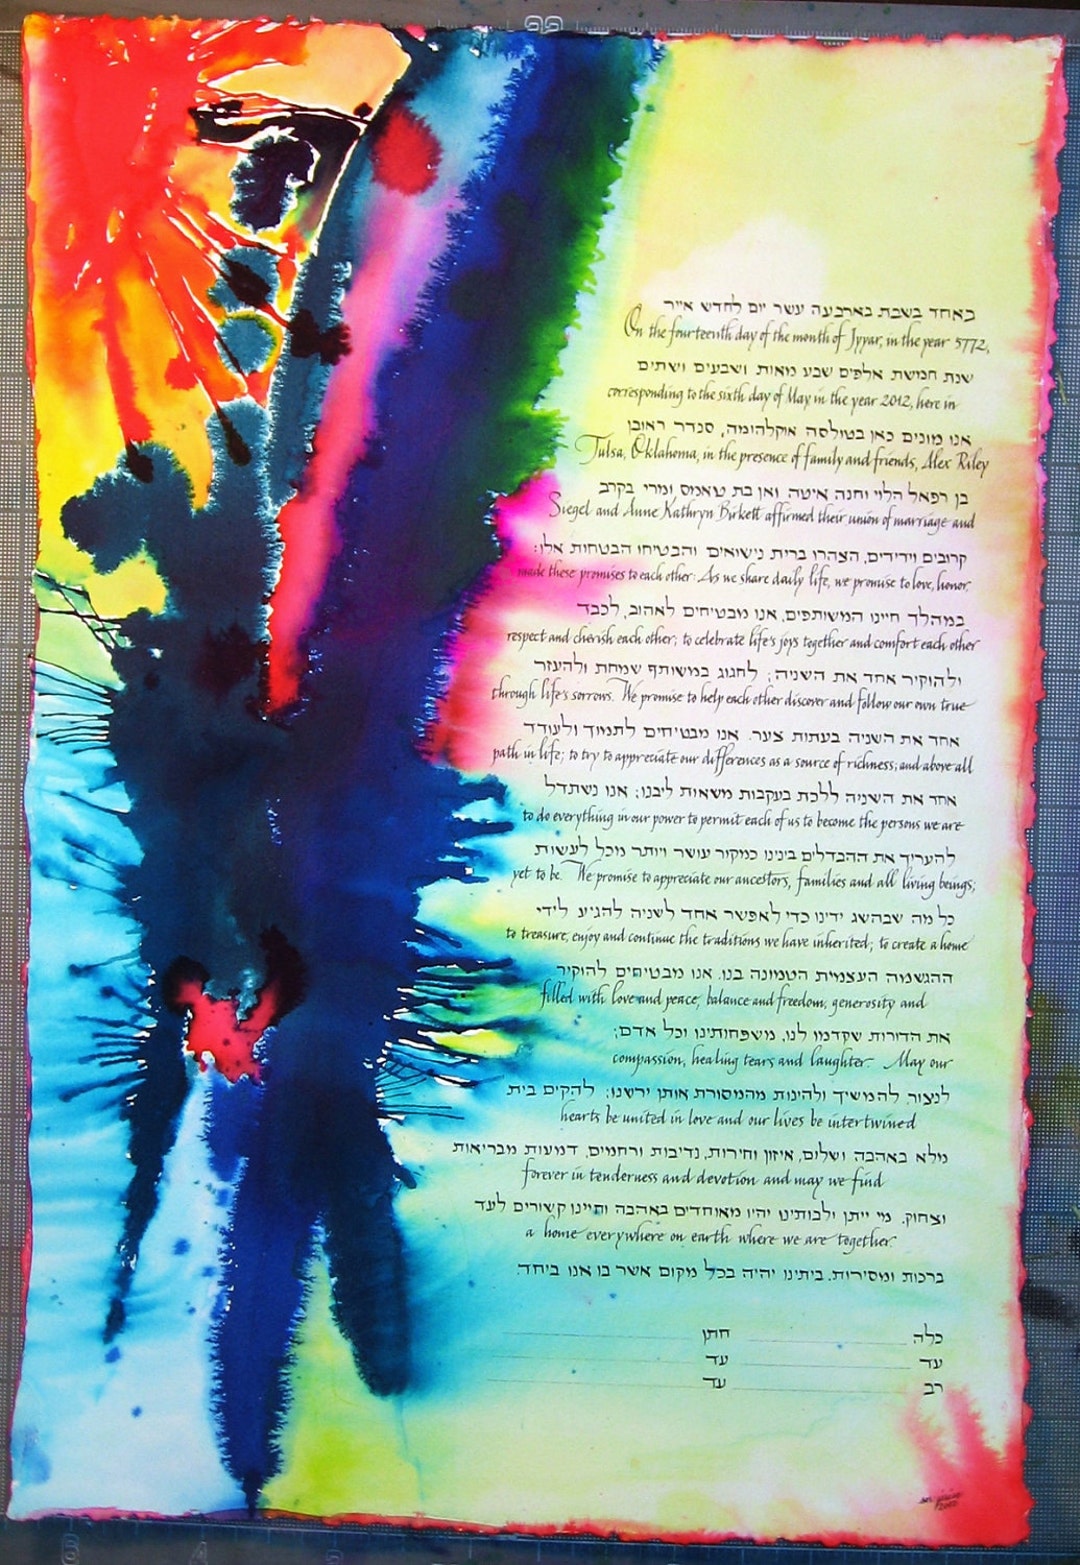 באחד בשבת בארבעה עשר יום לחדש אייר
On the fourteenth day of the month of Iyyar, in the year 5772,
שנת חמישת אלפים שבע מאות ושבעים ושתים
corresponding to the sixth day of May in the year 2012, here in
אנו מונים כאן בטולסה אוקלהומה, סנדר ראובן
Tulsa, Oklahoma, in the presence of family and friends, Alex Riley
בן רפאל הלוי וחנה איטה ואן בת טאמס ומרי בקרב
Siegel and Anne Kathryn Birkett affirmed their union of marriage and
קרובים וידידים, הצהרו ברית נישואים והבטיחו הבטחות אלו:
made these promises to each other: As we share daily life, we promise to love, honor,
במהלך חיינו המשותפים, אנו מבטיחים לאהוב, לכבד
respect and cherish each other; to celebrate life's joys together and comfort each other
ולהוקיר אחד את השניה; לחגוג במשותף שמחת ולהעזר
through life's sorrows. We promise to help each other discover and follow our own true
אחד את השניה בעתות צער. אנו מבטיחים לתמוך ולעודד
path in life; to try to appreciate our differences as a source of richness; and above all
אחד את השניה ללכת בעקבות משאות ליבנו; אנו נשתדל
to do everything in our power to permit each of us to become the persons we are
להעריך את ההבדלים בינינו כמקור עושר ויותר מכל לעשות
yet to be. We promise to appreciate our ancestors, families and all living beings;
כל מה שבהשג ידינו כדי לאפשר אחד לשניה להגיע לידי
to treasure, enjoy and continue the traditions we have inherited; to create a home
ההגשמה העצמית הטמונה בנו. אנו מבטיחים להוקיר
filled with love and peace, balance and freedom, generosity and
את הדורות שקדמו לנו, משפחותינו וכל אדם;
compassion, healing tears and laughter. May our
לנצור, להמשיך ולהינות מהמסורת אותן ירשנו; להקים בית
hearts be united in love and our lives be intertwined
מלא באהבה ושלום, איזון וחירות, נדיבות ורחמים, דמעות מבריאות
forever in tenderness and devotion and may we find
וצחוק. מי ייתן ולבותינו יהיו מאוחדים באהבה וחיינו קשורים לעד
a home everywhere on earth where we are together.
ברכות ומסירות. ביתינו יהיה בכל מקום אשר בו אנו ביחד.
כלה חתן
עד עד
רב עד
2012